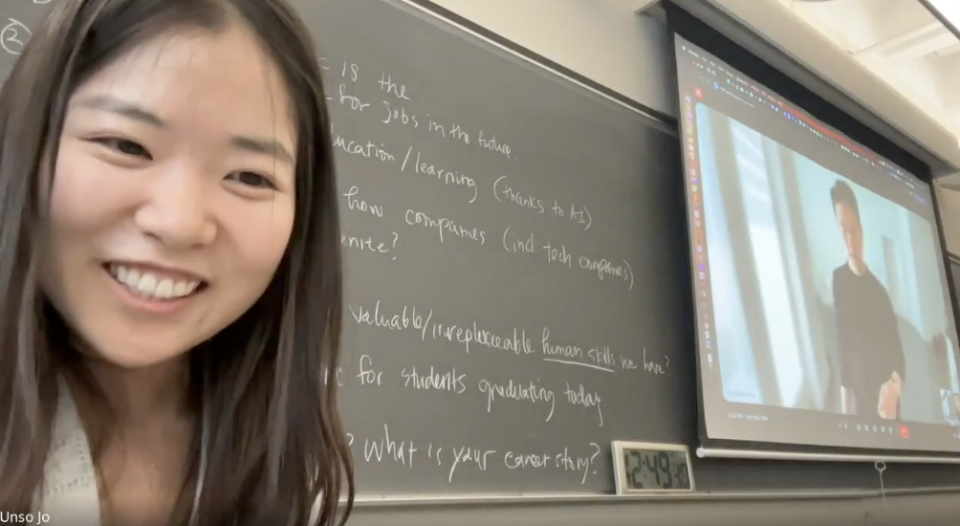 ②
is the
for jobs in the future.
ucation / learning (thanks to AI)
how companies (incl tech companies)
valuable/irreplaceable human skills we have?
for students graduating today
? What is your career story?
12:49
Unso Jo